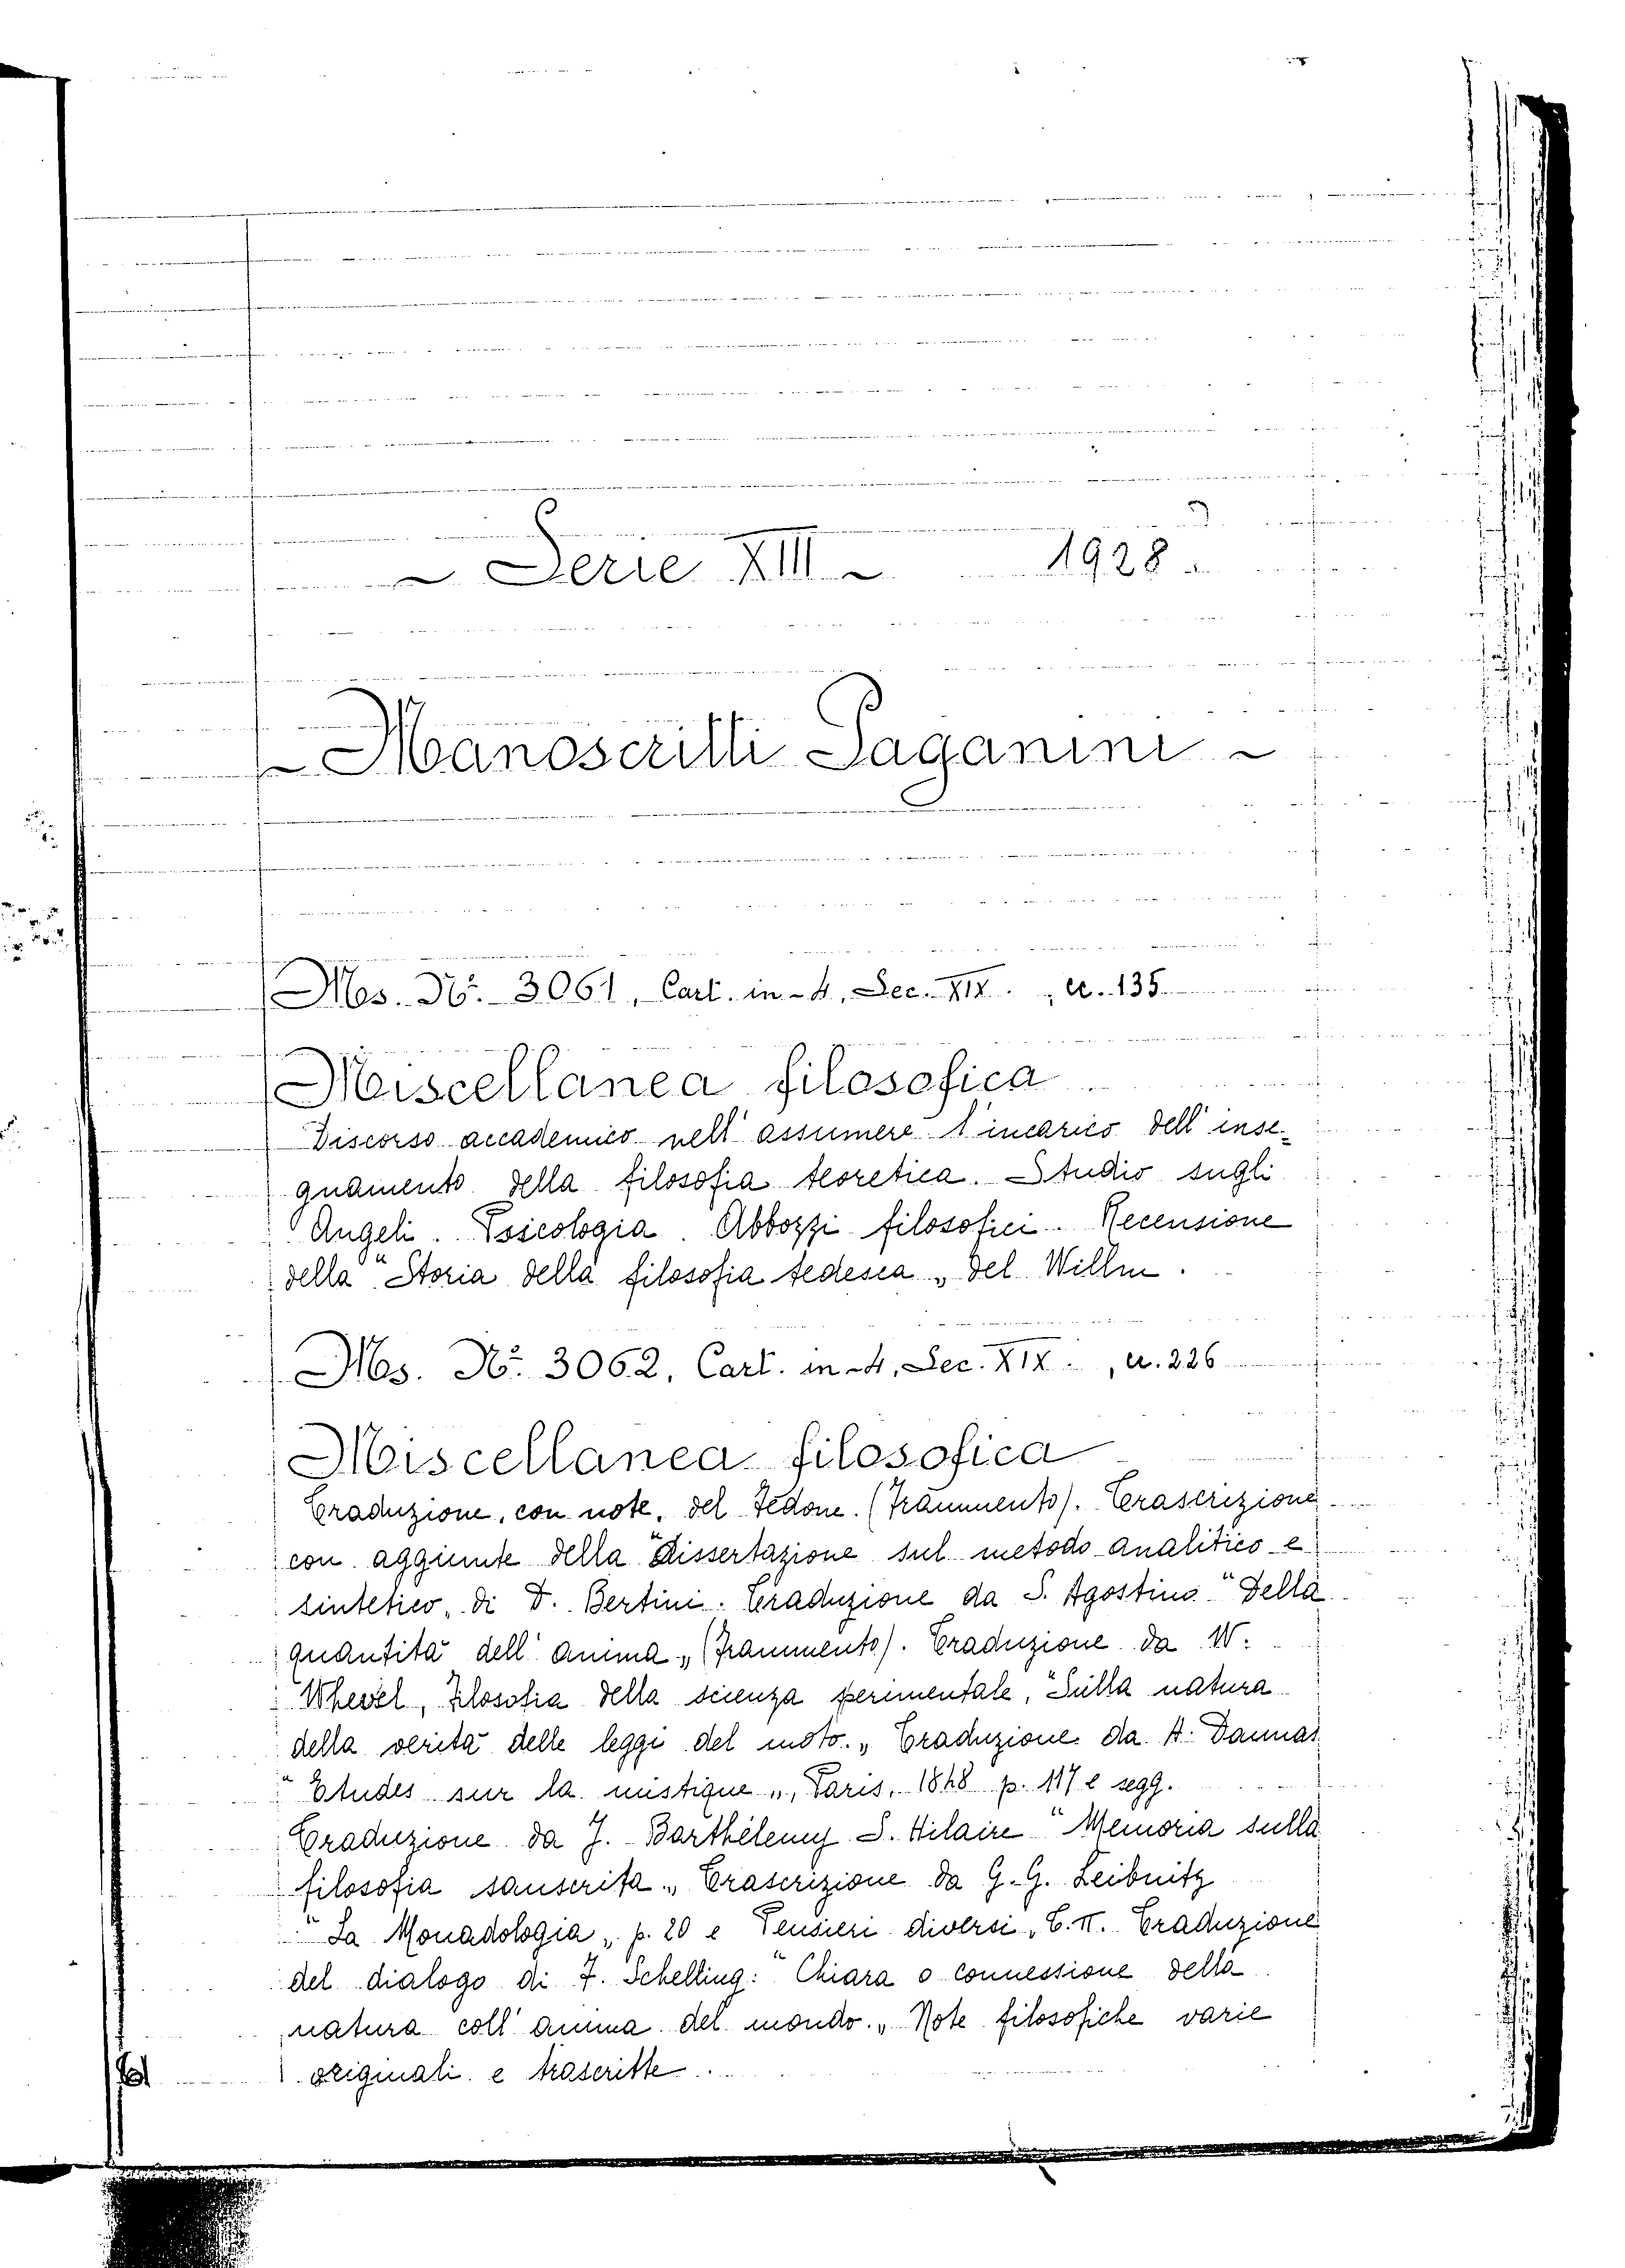 ~ Serie XIII ~ 1928
~ Manoscritti Paganini ~
Ms. No. 3061, Cart. in-4, Sec. XIX. , cc. 135
Miscellanea filosofica
Discorso accademico nell' assumere l'incarico dell' inse-
gnamento della filosofia teoretica. Studio sugli
Angeli. Psicologia. Abbozzi filosofici. Recensione
della "Storia della filosofia tedesca „ del Willm.
Ms. No. 3062, Cart. in-4, Sec. XIX. , cc. 226
Miscellanea filosofica
Traduzione, con note, del Fedone. (Frammento). Trascrizione
con aggiunte della "Dissertazione sul metodo analitico e
sintetico „ di D. Bertini. Traduzione da S. Agostino "Della
quantità dell' anima „ (Frammento). Traduzione da W.
Whevel, Filosofia della scienza sperimentale, "Sulla natura
della verità delle leggi del moto. „ Traduzione da A. Dannas
"Etudes sur la mistique „, Paris, 1848 p. 117 e segg.
Traduzione da J. Barthélemy S. Hilaire "Memoria sulla
filosofia sanscrita „ Trascrizione da G. G. Leibnitz
"La Monadologia „ p. 20 e Pensieri diversi, T. II. Traduzione
del dialogo di F. Schelling: "Chiara o connessione della
natura coll' anima del mondo. „ Note filosofiche varie
originali e trascritte.